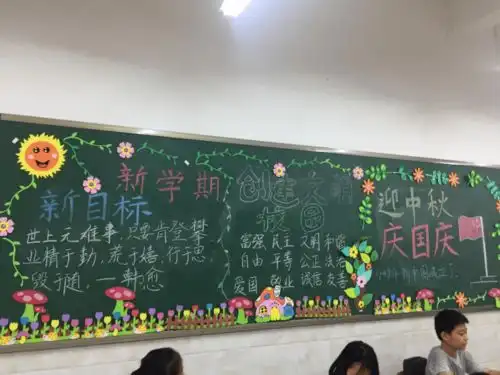 新学期
新目标
世上无难事,只要肯登攀
业精于勤,荒于嬉,行于思,
毁于随,一勤愈
创建文明
校园
富强 民主 文明 和谐
自由 平等 公正 法治
爱国 敬业 诚信 友善
迎中秋
庆国庆